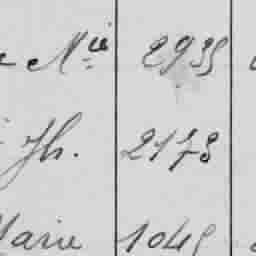 e Nⁱᵉ 2935
Jh. 2173
Marie 1045